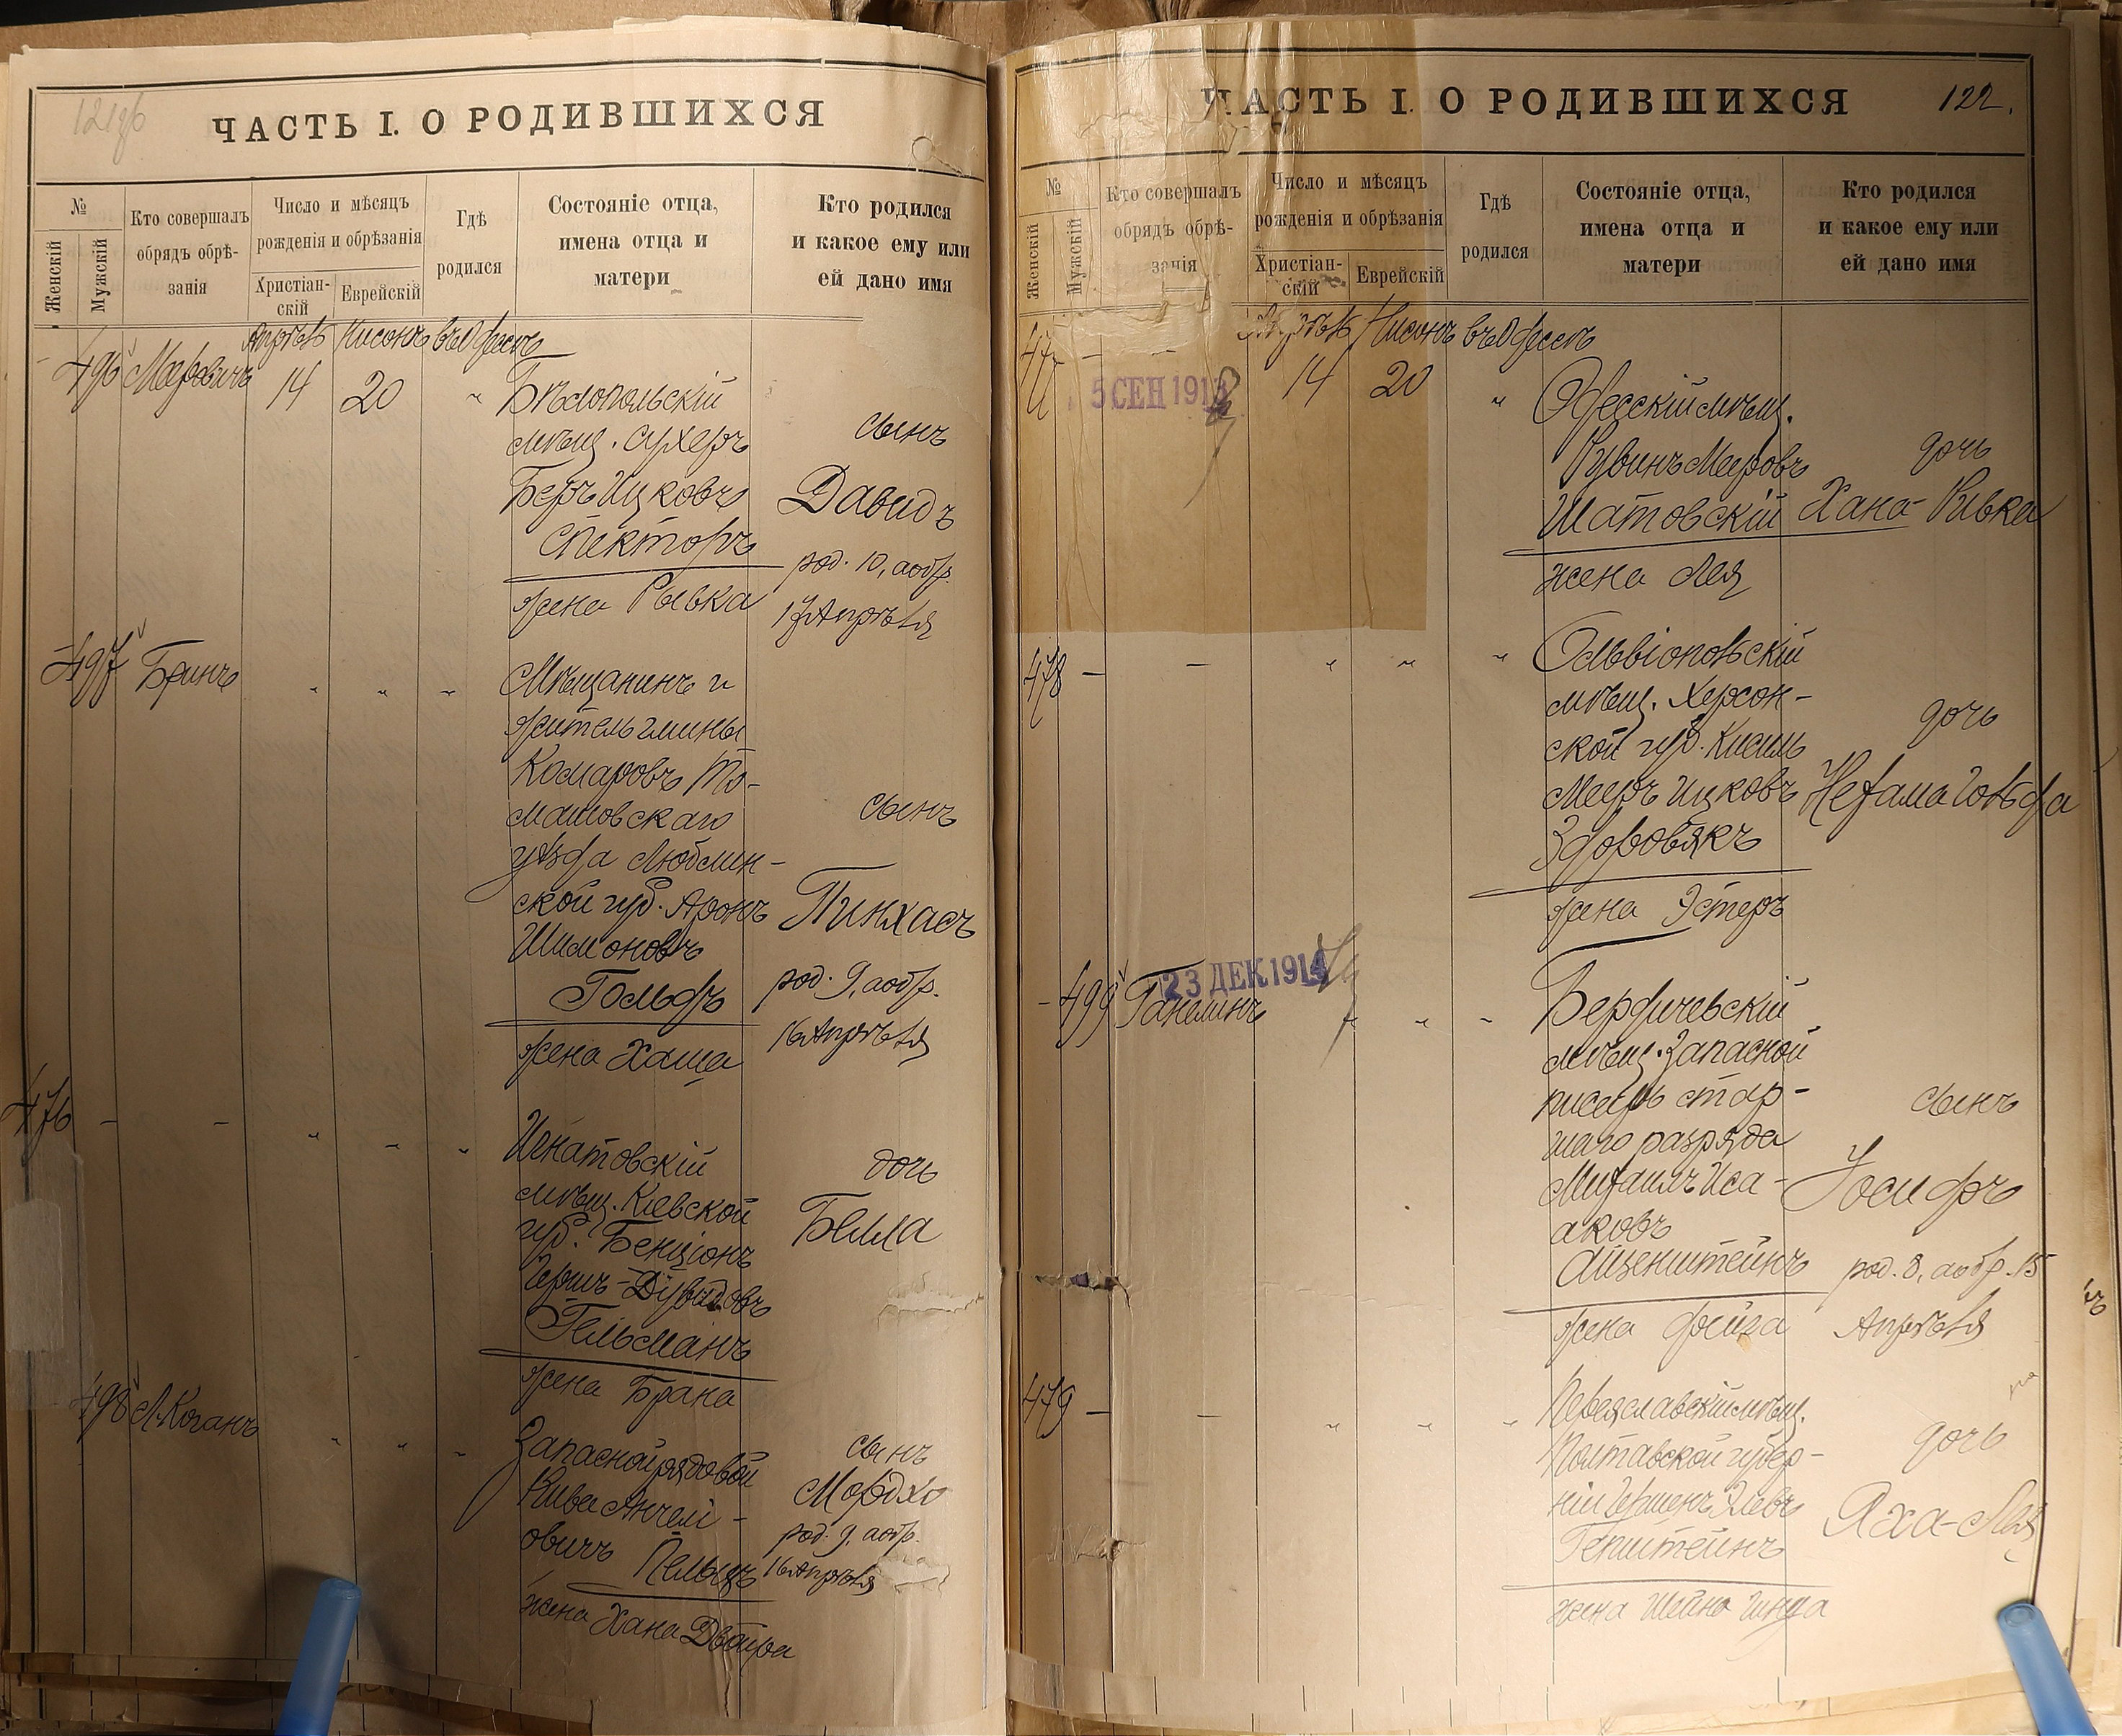 121об
ЧАСТЬ I. О РОДИВШИХСЯ
№
Женскій
Мужскій
Кто совершалъ
обрядъ обрѣ-
занія
Число и мѣсяцъ
рожденія и обрѣзанія
Христіан-
скій
Еврейскій
Гдѣ
родился
Состояніе отца,
имена отца и
матери
Кто родился
и какое ему или
ей дано имя
Апрѣль Нисонъ въ Одессѣ
496 Мееровичъ 14 20 " Бѣлопольскій
мѣщ. Сухеръ
Беръ Ицковъ
Спекторъ
жена Рывка
сынъ
Давидъ
род. 10, а обр.
17 Апрѣля
497 Бринъ " " " Мѣщанинъ и
житель гмины
Комаровъ То-
машовскаго
уѣзда Люблин-
ской губ. Аронъ
Шимоновъ
Гольфъ
жена Хаша
сынъ
Пинхасъ
род. 9, а обр.
16 Апрѣля
476 - - " " " Игнатовскій
мѣщ. Кіевской
губ. Бенціонъ
Гершъ-Дувидовъ
Гельманъ
жена Брана
дочь
Бейла
498 Л. Коганъ " " " Запасной рядовой
Кива Анчел-
овичъ Пельцъ
жена Хана Двойра
сынъ
Мордхо
род. 9, а обр.
16 Апрѣля
ЧАСТЬ I. О РОДИВШИХСЯ
122.
№
Женскій
Мужскій
Кто совершалъ
обрядъ обрѣ-
занія
Число и мѣсяцъ
рожденія и обрѣзанія
Христіан-
скій
Еврейскій
Гдѣ
родился
Состояніе отца,
имена отца и
матери
Кто родился
и какое ему или
ей дано имя
Апрѣль Нисонъ въ Одессѣ
477 - - 14 20 " Одесскій мѣщ.
5 СЕН 1913
Рувинъ Мееровъ
Шатовскій
жена Лея
дочь
Хана-Ривка
478 - - " " " Ольвіопольскій
мѣщ. Херсон-
ской губ. Кисиль
Мееръ Ицковъ
Здоровякъ
жена Эстеръ
дочь
Нехама Гольда
23 ДЕК 1914
499 Ганелинъ " " " Бердичевскій
мѣщ. Запасной
писарь стар-
шаго разряда
Михаилъ Иса-
аковъ
Айзенштейнъ
жена Фейга
сынъ
Іосифъ
род. 8, а обр. 15
Апрѣля
479 - - " " " Переяславскій мѣщ.
Полтавской губер-
ніи Гершенъ
Гепштейнъ
жена Шейна Гинда
дочь
Яха-Лея